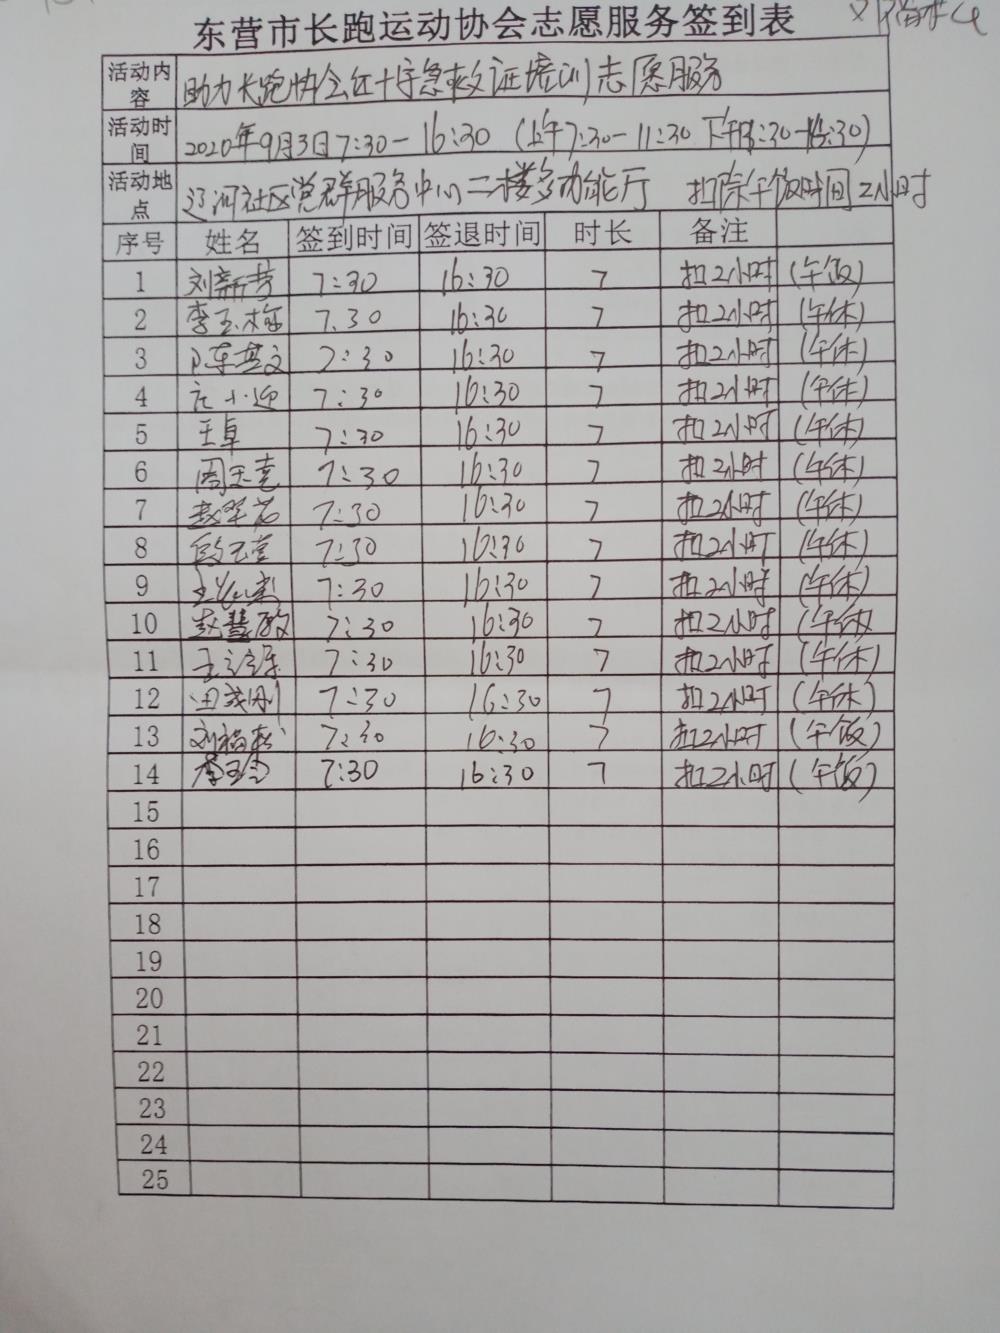 东营市长跑运动协会志愿服务签到表
活动内容 助力长跑协会红十字急救证培训志愿服务
活动时间 2020年9月3日7:30-16:30 (上午7:30-11:30 下午1:30-16:30)
活动地点 辽河社区党群服务中心二楼多功能厅 扣除午饭时间2小时
序号 姓名 签到时间 签退时间 时长 备注
1 刘新芳 7:30 16:30 7 扣2小时 (午饭)
2 李玉梅 7.30 16:30 7 扣2小时 (午休)
3 陈英文 7:30 16:30 7 扣2小时 (午休)
4 庄小迎 7:30 16:30 7 扣2小时 (午休)
5 王卓 7:30 16:30 7 扣2小时 (午休)
6 周玉亮 7:30 16:30 7 扣2小时 (午休)
7 赵翠花 7:30 16:30 7 扣2小时 (午休)
8 7:30 16:30 7 扣2小时 (午休)
9 7:30 16:30 7 扣2小时 (午休)
10 赵慧敏 7:30 16:30 7 扣2小时 (午休)
11 7:30 16:30 7 扣2小时 (午休)
12 田茂刚 7:30 16:30 7 扣2小时 (午休)
13 刘福彬 7:30 16:30 7 扣2小时 (午饭)
14 7:30 16:30 7 扣2小时 (午饭)
15
16
17
18
19
20
21
22
23
24
25